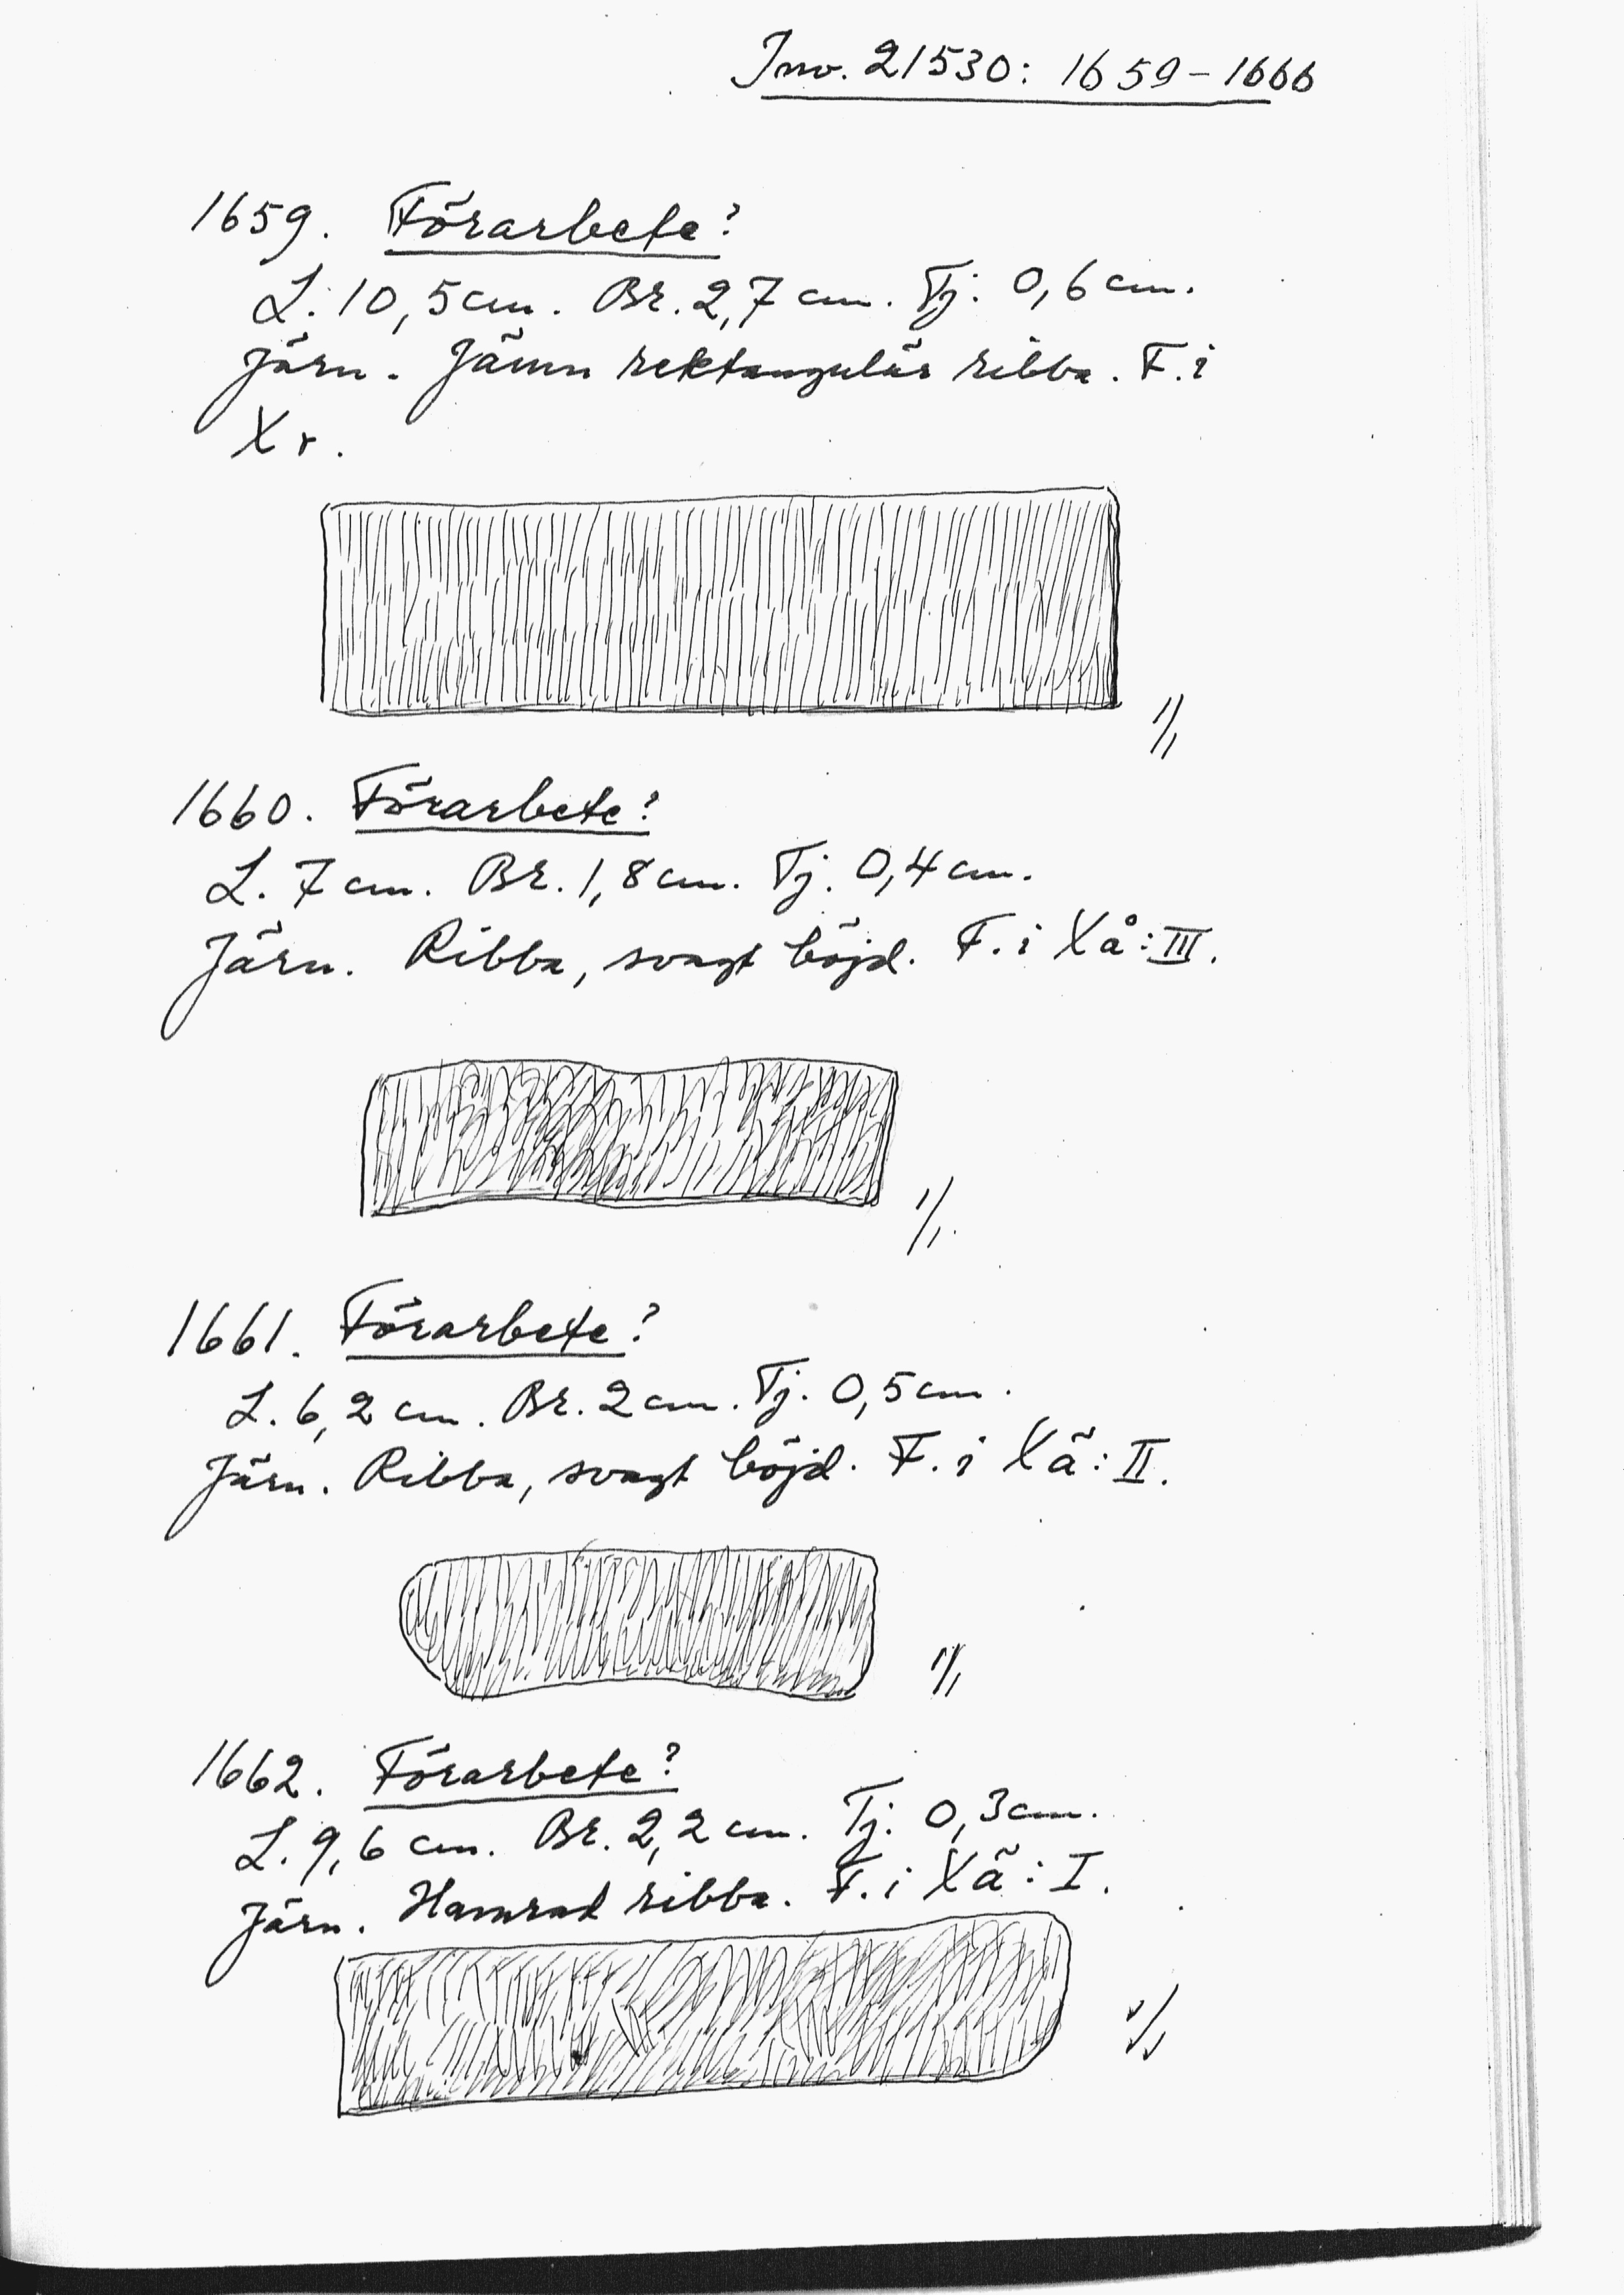 Inv. 21530: 1659-1666
1659. Förarbete?
L. 10,5 cm. Br. 2,7 cm. Tj. 0,6 cm.
Järn. Jämn rektangulär ribba. F. i
X r.
1/1
1660. Förarbete?
L. 7 cm. Br. 1,8 cm. Tj. 0,4 cm.
Järn. Ribba, svagt böjd. F. i Xå: III.
1/1.
1661. Förarbete?
L. 6,2 cm. Br. 2 cm. Tj. 0,5 cm.
Järn. Ribba, svagt böjd. F. i Xä: II.
1/1
1662. Förarbete?
L. 9,6 cm. Br. 2,2 cm. Tj. 0,3 cm.
Järn. Hamrad ribba. F. i Xä: I.
1/1